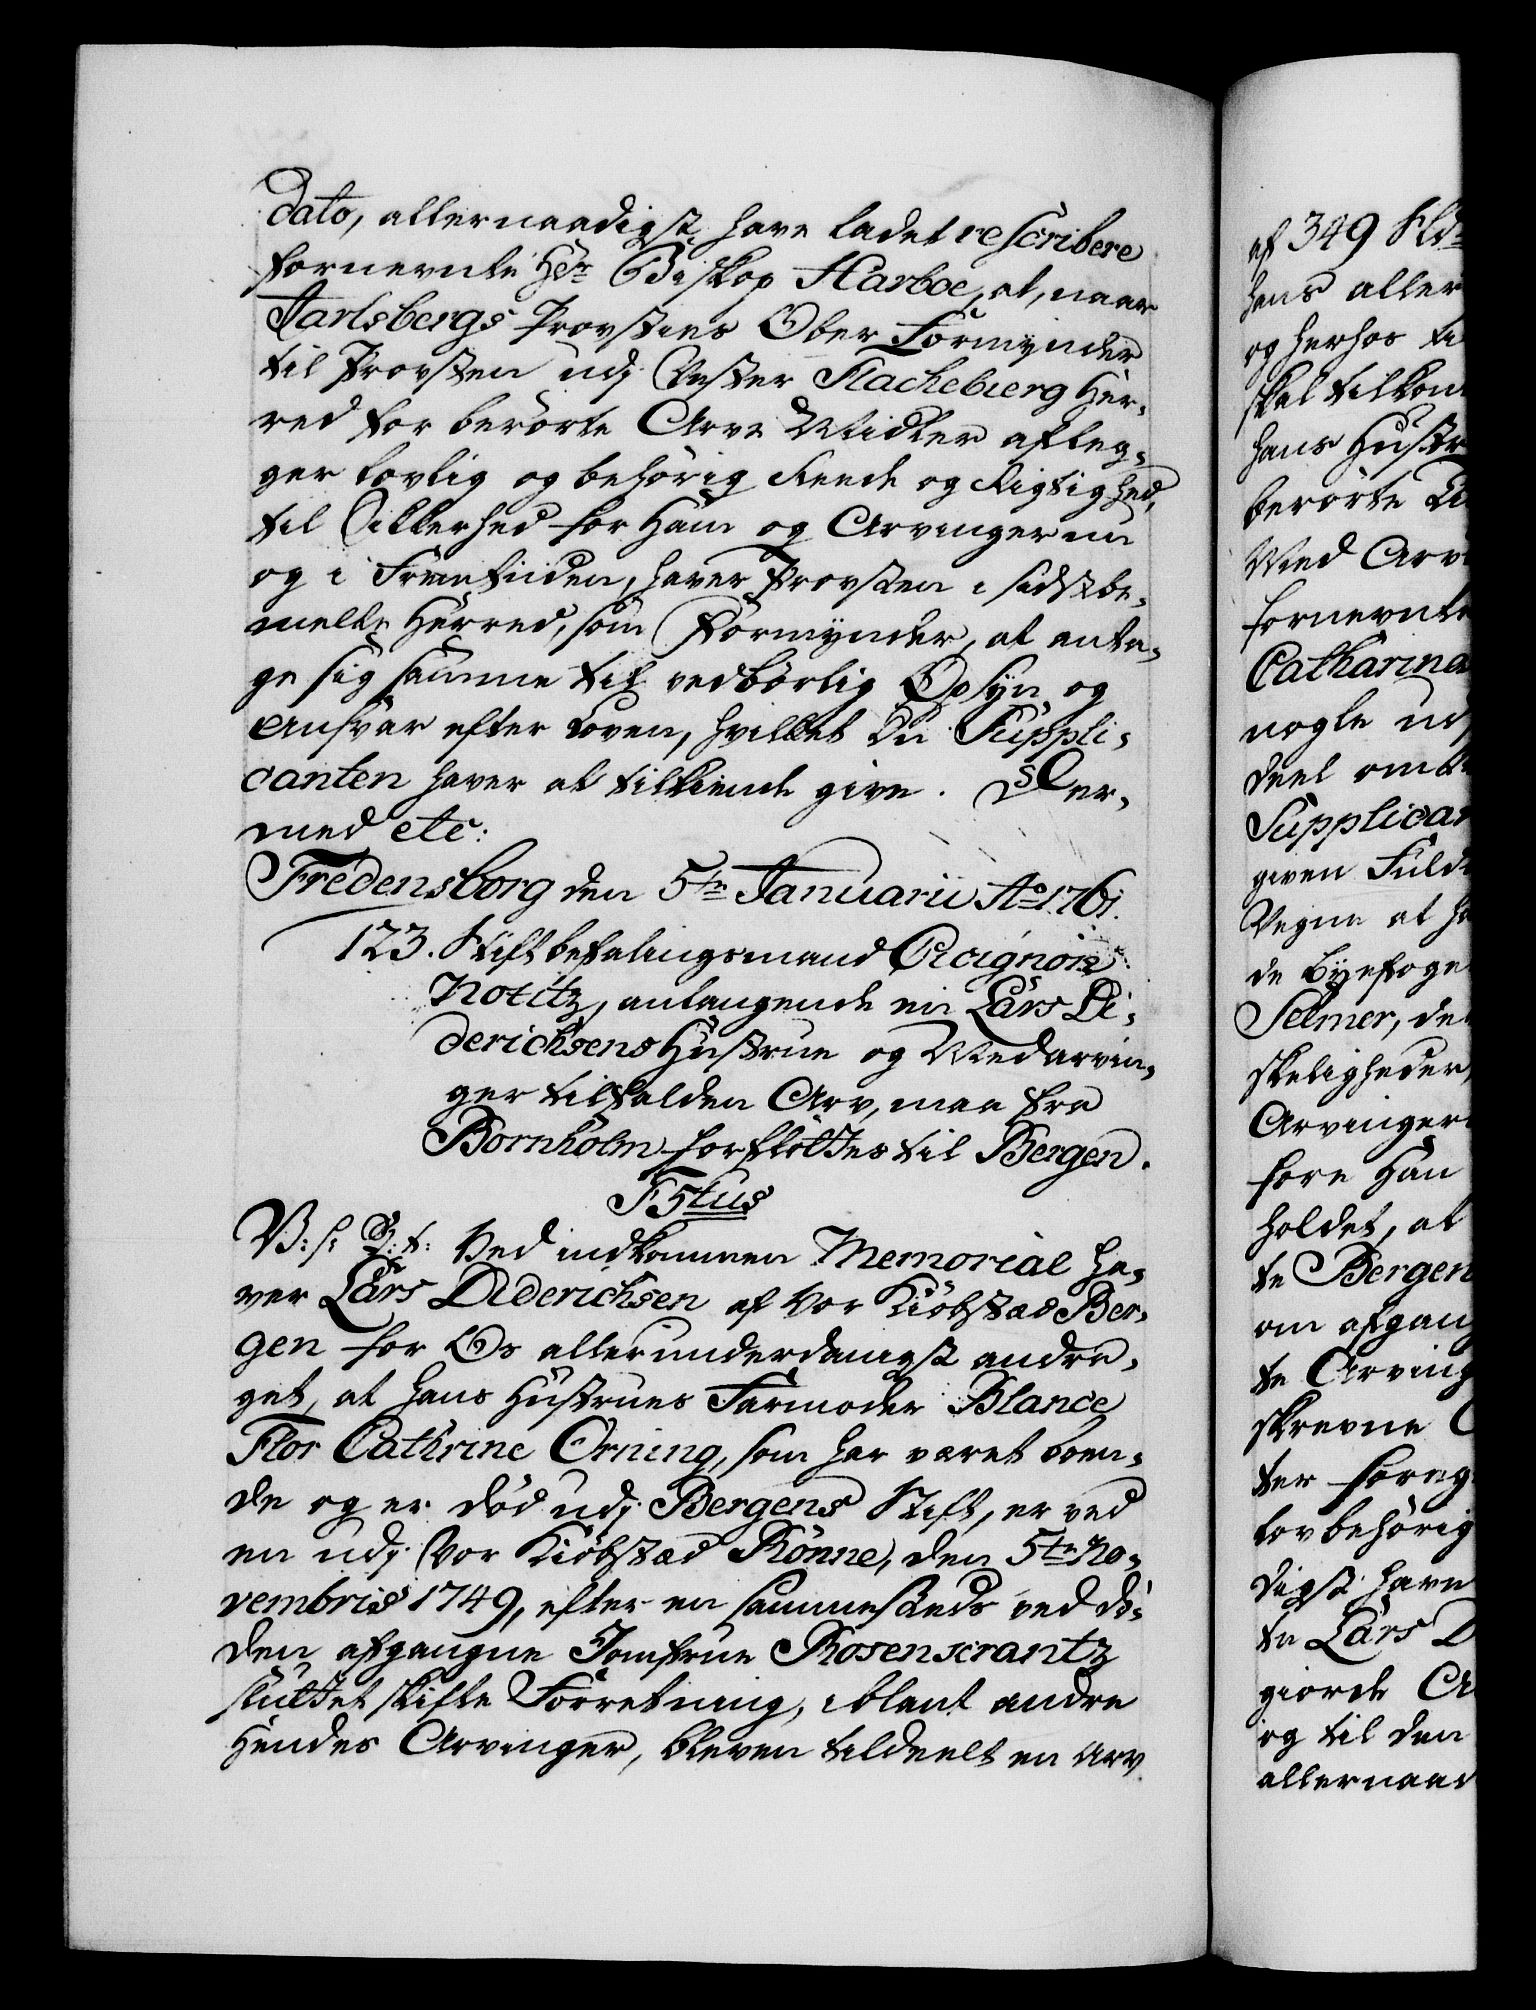 dato, allernaadigst have ladet rescribere
fornevnte Hr. Biskop Harboe, at, naar
Jarlsbergs Provsties Ober Formynder
til Provsten udj Vester Flachebierg Her-
red for berörte Arve Midler afleg-
ger lovlig og behörig Reede og Rigtighed,
til Sikkerhed for Ham og Arvingerne nu
og i Fremtiiden, haver Provsten i sidstbe-
melte Herred, som Formynder, at anta-
ge sig samme til vedbörlig Opsyn og
Ansvar efter Loven, hvilket du Suppli-
canten haver at tilkiende give. Der-
med etc:
Fredensborg den 5te Januarii Ao 1761.
123. Stiftbefalingsmand Cicignon
Notitz, anlangende en Lars Di-
derichsens Hustrue og Medarvin-
ger tilfalden Arv, maa fra
Bornholm forflöttes til Bergen.
F 5tus
V: s: G: t: Ved indkommen Memorial ha-
ver Lars Diderichsen af Vor Kiöbstæd Ber-
gen for Os allerunderdanigst andra-
get, at hans Hustrues Farmoder Blance
Flor Cathrine Orning, som har været boen-
de og er död udj Bergens Stift, er ved
en udj Vor Kiöbstæd Rönne, den 5te No-
vembris 1749, efter en sammesteds ved dö-
den afgangne Jomfrue Rosenscrantz
sluttet skifte Forretning, iblant andre
Hendes Arvinger, bleven tildeelt en Arv
af 349 Rldr
hans aller
og herhos
skal tilkom
hans Hustr
berörte
Med Arv
fornevnte
Catharina
nogle ud
deel omb
Supplican
given Fuld
Vegne at h
de Byefoge
Selmer, de
skeligheder
Arvinger
fore Han
holdet, at
te Bergen
om afgang
te Arving
skrevne
ter foreg
lovbehörig
digst have
te Lars D
giorde A
og til den
allernaad